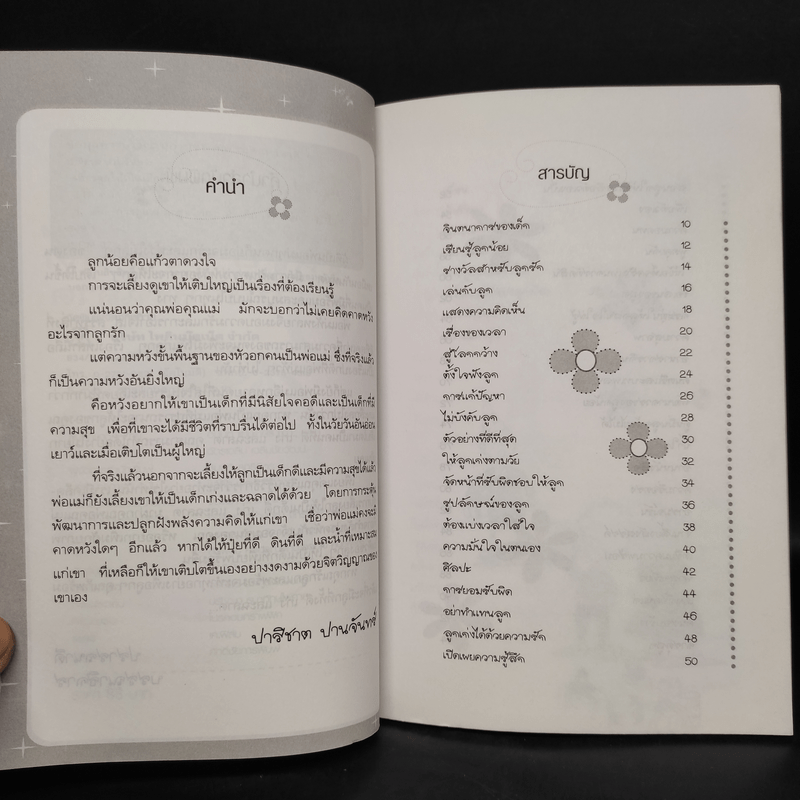 คำนำ
ลูกน้อยคือแก้วตาดวงใจ
การจะเลี้ยงดูเขาให้เติบใหญ่เป็นเรื่องที่ต้องเรียนรู้
แน่นอนว่าคุณพ่อคุณแม่ มักจะบอกว่าไม่เคยคิดคาดหวัง
อะไรจากลูกรัก
แต่ความหวังขั้นพื้นฐานของหัวอกคนเป็นพ่อแม่ ซึ่งที่จริงแล้ว
ก็เป็นความหวังอันยิ่งใหญ่
คือหวังอยากให้เขาเป็นเด็กที่มีนิสัยใจคอดีและเป็นเด็กที่มี
ความสุข เพื่อที่เขาจะได้มีชีวิตที่ราบรื่นได้ต่อไป ทั้งในวัยวันอันอ่อน
เยาว์และเมื่อเติบโตเป็นผู้ใหญ่
ที่จริงแล้วนอกจากจะเลี้ยงให้ลูกเป็นเด็กดีและมีความสุขได้แล้ว
พ่อแม่ก็ยังเลี้ยงเขาให้เป็นเด็กเก่งและฉลาดได้ด้วย โดยการกระตุ้น
พัฒนาการและปลูกฝังพลังความคิดให้แก่เขา เชื่อว่าพ่อแม่คงจะไม่
คาดหวังใดๆ อีกแล้ว หากได้ให้ปุ๋ยที่ดี ดินที่ดี และน้ำที่เหมาะสม
แก่เขา ที่เหลือก็ให้เขาเติบโตขึ้นเองอย่างงดงามด้วยจิตวิญญาณของ
เขาเอง
ปาริชาต ปานจันทร์
สารบัญ
จินตนาการของเด็ก 10
เรียนรู้ลูกน้อย 12
รางวัลสำหรับลูกรัก 14
เล่นกับลูก 16
แสดงความคิดเห็น 18
เรื่องของเวลา 20
สู่โลกกว้าง 22
ตั้งใจฟังลูก 24
การแก้ปัญหา 26
ไม่บังคับลูก 28
ตัวอย่างที่ดีที่สุด 30
ให้ลูกเก่งตามวัย 32
จัดหน้าที่รับผิดชอบให้ลูก 34
รูปลักษณ์ของลูก 36
ต้องแบ่งเวลาใส่ใจ 38
ความมั่นใจในตนเอง 40
ศิลปะ 42
การยอมรับผิด 44
อย่าทำแทนลูก 46
ลูกเก่งได้ด้วยความรัก 48
เปิดเผยความรู้สึก 50